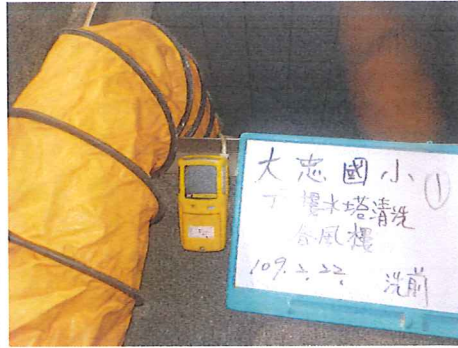 大忠國小 ①
下樓水塔清洗
春風樓
109.2.22. 洗前